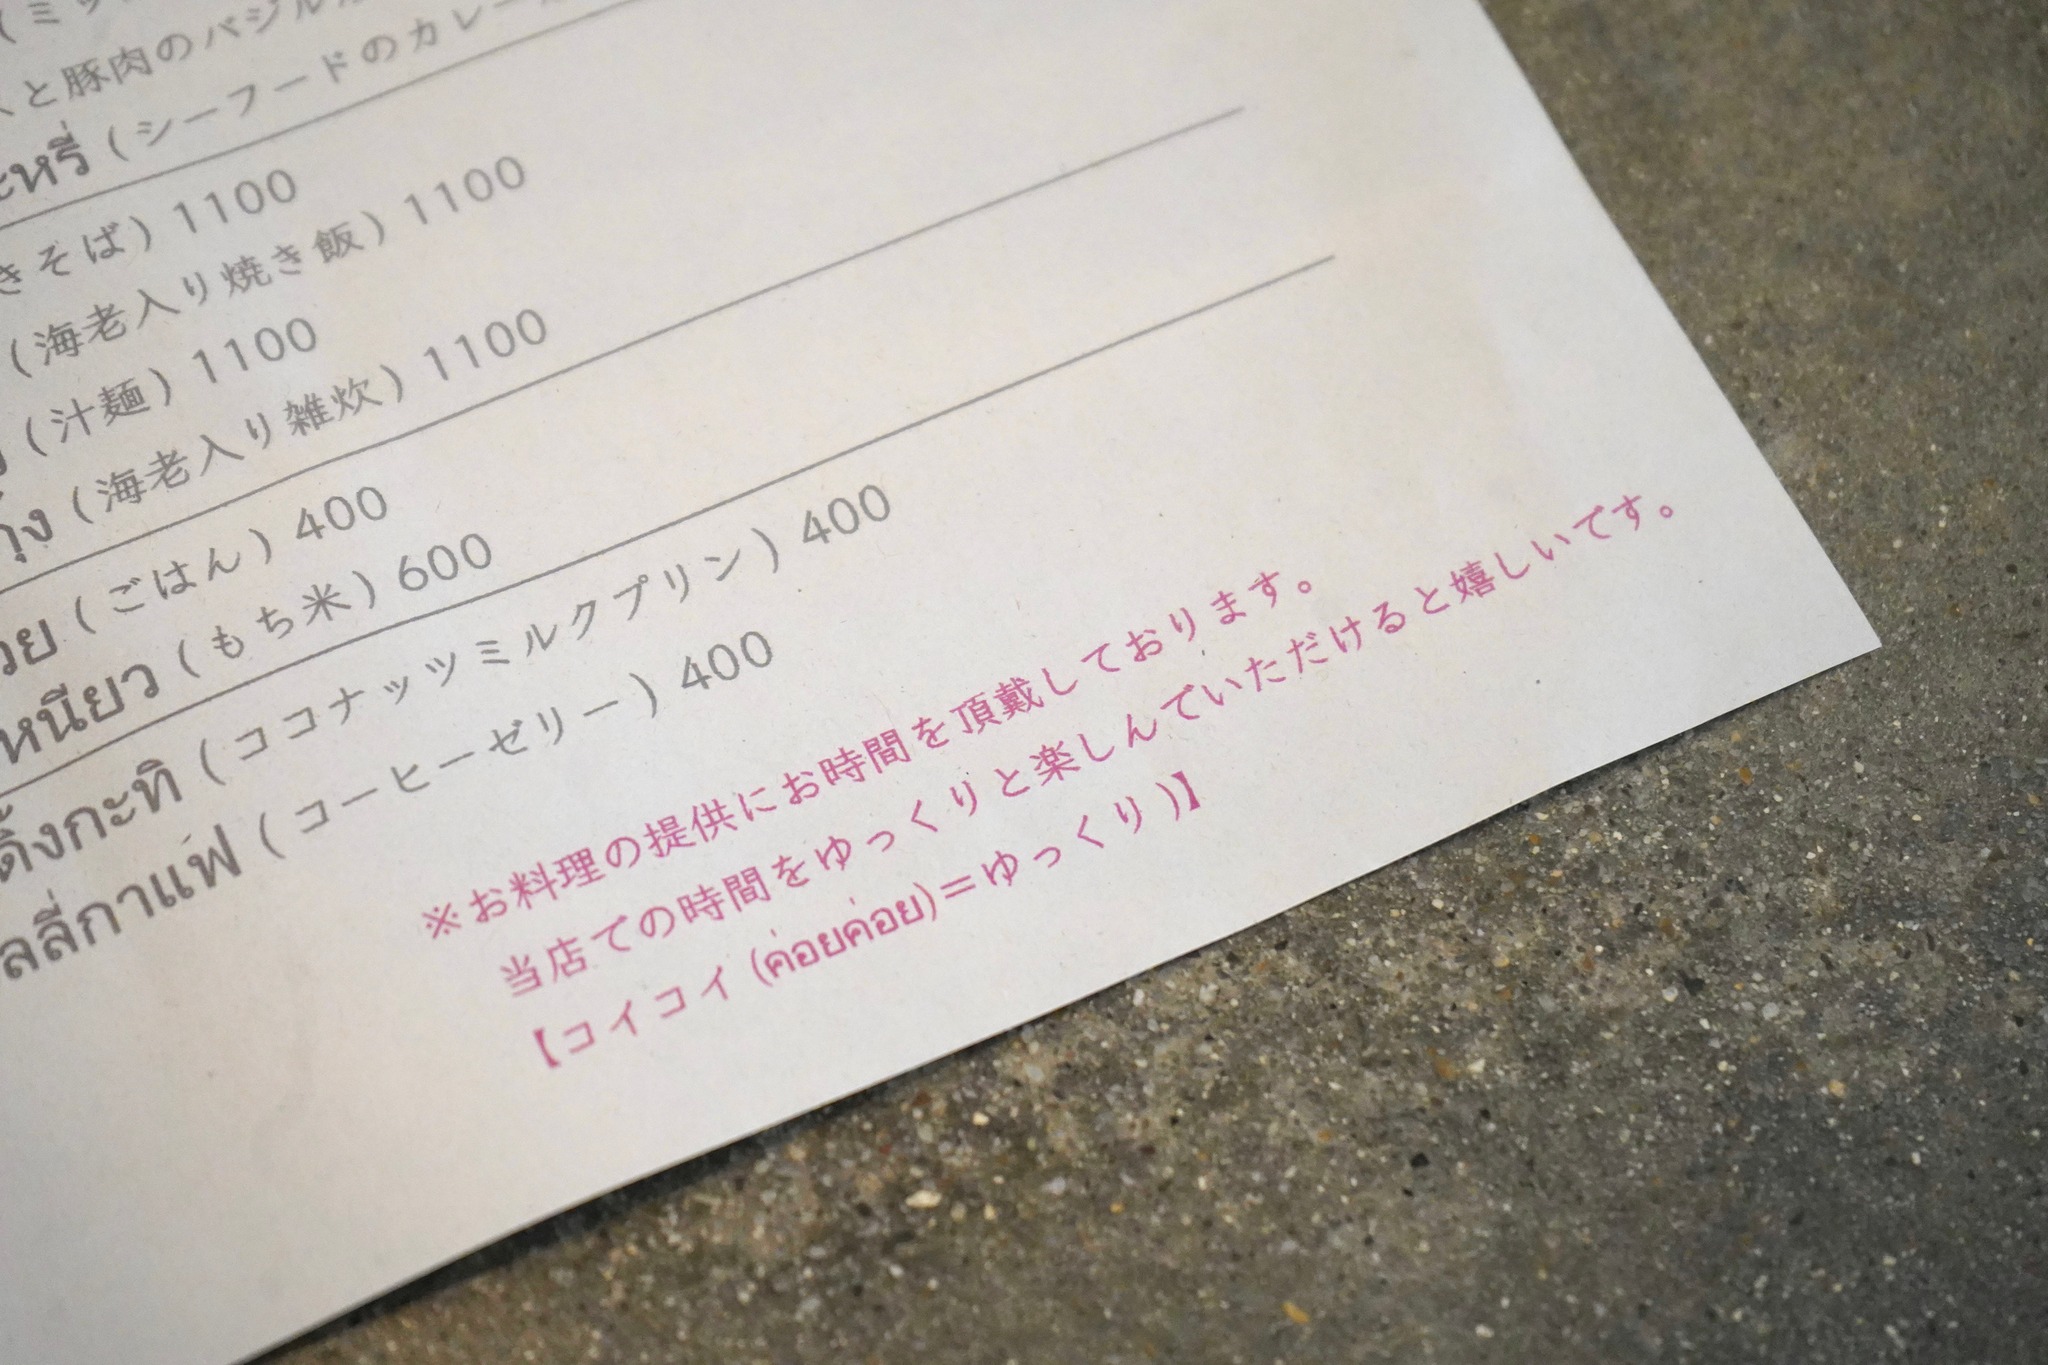 と豚肉のバジル
ะหรี่ (シーフードのカレー
きそば) 1100
(海老入り焼き飯) 1100
(汁麺) 1100
กุ้ง (海老入り雑炊) 1100
วย (ごはん) 400
หนียว (もち米) 600
ดิ้งกะทิ (ココナッツミルクプリン) 400
ลลี่กาแฟ (コーヒーゼリー) 400
※お料理の提供にお時間を頂戴しております。
当店での時間をゆっくりと楽しんでいただけると嬉しいです。
【コイコイ (ค่อยค่อย)=ゆっくり)】